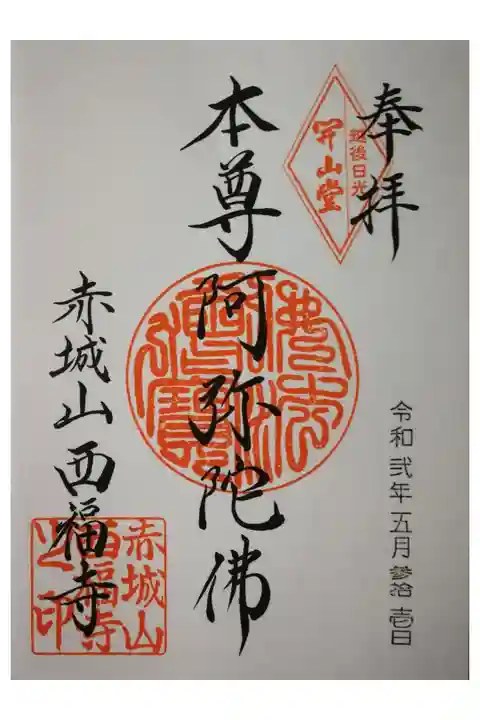 奉拝
越後日光
開山堂
令和弐年五月参拾壱日
本尊阿弥陀佛
佛法僧寶
赤城山西福寺
赤城山
西福寺
之印